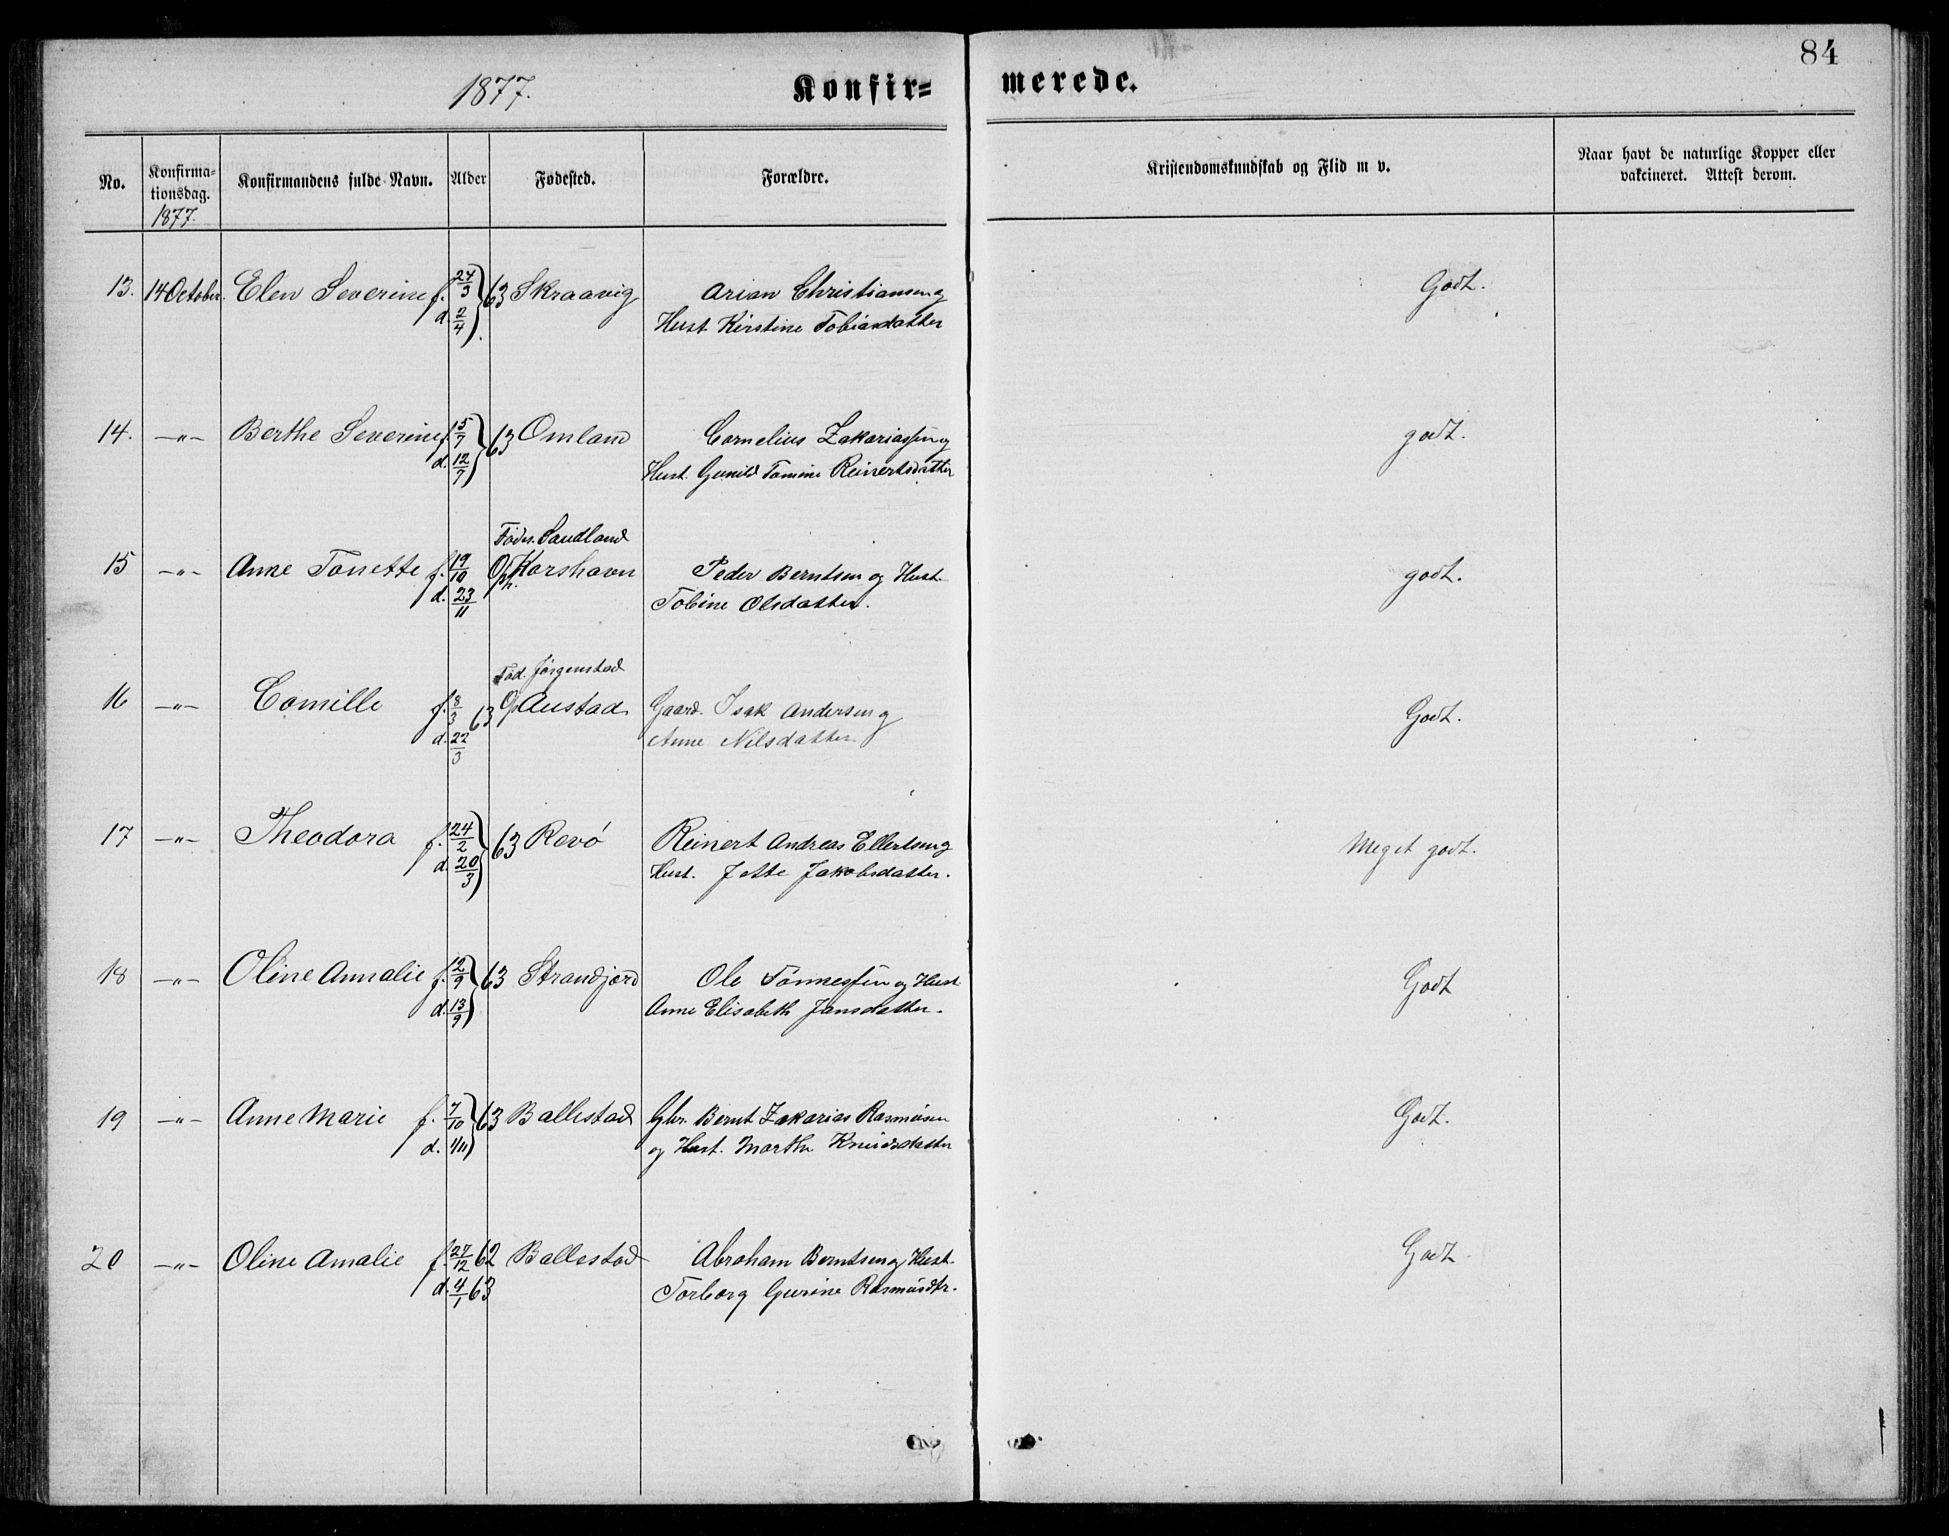 84
1877. Konfir= merede.
No. Konfirma-tionsdag. 1877. Konfirmandens fulde Navn. Alder Fødested. Forældre. Kristendomskundskab og Flid m v. Naar havt de naturlige Kopper eller vakcineret. Attest derom.
13. 14 October. Elen Severine f. 24/3 63 Skraavig Arian Christiansen og Godt.
d. 2/4 Hust. Kirstine Tobiasdatter
14. —"— Berthe Severine f. 5/7 63 Omland Cornelius Zakariassen og godt.
d. 12/7 Hust. Gunild Tomine Reinertsdatter
Føds. Sandland
15 —"— Anne Tonette f. 19/10 Op. Korshavn Peder Berntsen og Hust. godt.
d. 23/11 Tobine Olsdatter.
Fød. Jørgenstad
16 —"— Comille f. 8/3 63 Op Austad Gaard. Isak Andersen og Godt.
d. 22/3 Anne Nilsdatter.
17 —"— Theodora f. 24/2 63 Revø Reinert Andreas Ellertsen og Meget godt.
d. 20/3 Hust. Jette Jakobsdatter.
18 —"— Oline Annalie f. 12/9 63 Strandjord Ole Tønnessen og Hust Godt
d. 13/9 Anne Elisabeth Jansdatter.
19 —"— Anne Marie f. 7/10 63 Ballestad Gbr. Bernt Zakarias Rasmusen Godt.
d. 1/11 og Hust. Marthe Knudsdatter
20 —"— Oline Amalie f. 27/12 62 Ballestad Abraham Berntsen og Hust. Godt
d. 4/1 63 Torborg Gurine Rasmusdtr.